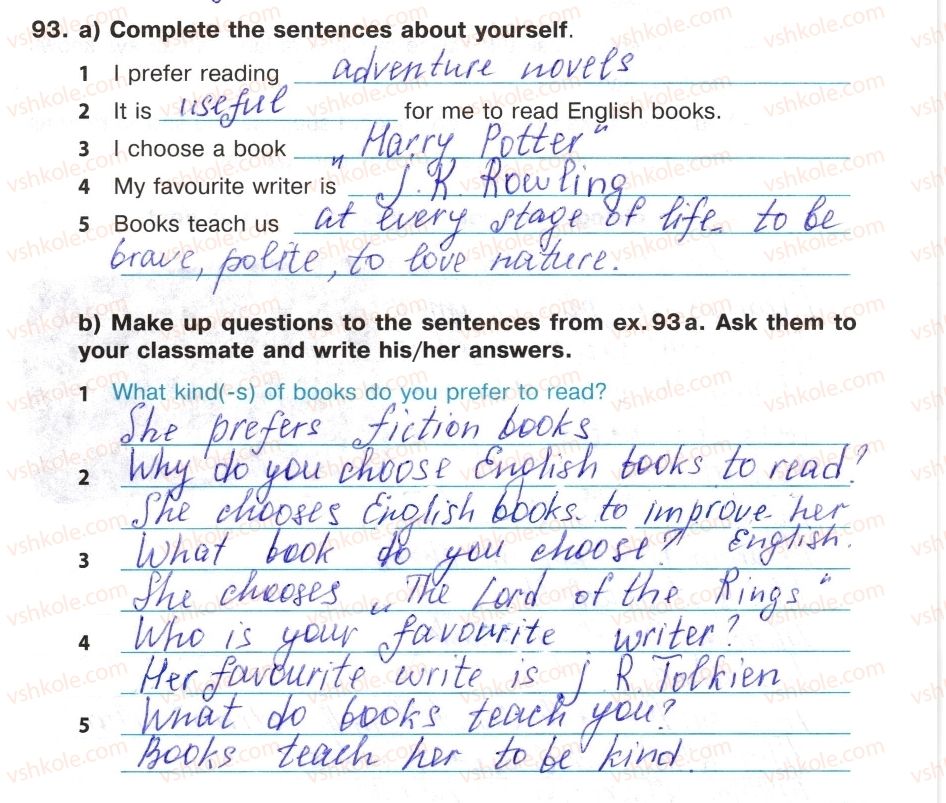 93. a) Complete the sentences about yourself.
1 I prefer reading adventure novels
2 It is useful for me to read English books.
3 I choose a book „Harry Potter"
4 My favourite writer is J. R. Rowling
5 Books teach us at every stage of life to be
brave, polite, to love nature.
b) Make up questions to the sentences from ex. 93 a. Ask them to
your classmate and write his/her answers.
1 What kind(-s) of books do you prefer to read?
She prefers fiction books
2 Why do you choose English books to read?
She chooses English books to improve her
English.
3 What book do you choose?
She chooses „The Lord of the Rings"
4 Who is your favourite writer?
Her favourite write is J R. Tolkien
5 What do books teach you?
Books teach her to be kind.
vshkole.com